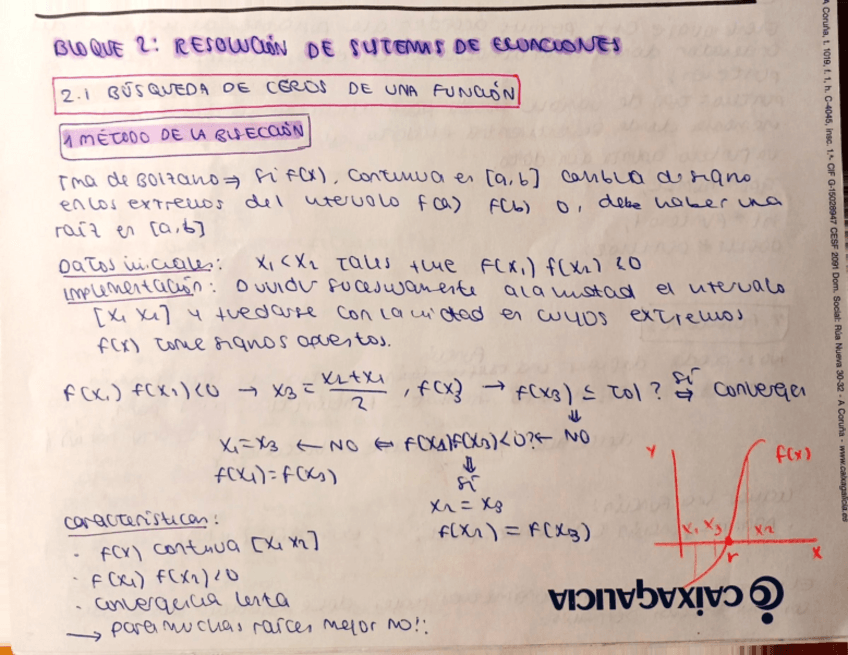 BLOQUE 2: RESOLUCIÓN DE SISTEMAS DE ECUACIONES
2.1 BÚSQUEDA DE CEROS DE UNA FUNCIÓN
1 MÉTODO DE LA BISECCIÓN
Tma de Bolzano ⇒ Si f(x), continua en [a,b] cambia de signo
en los extremos del intervalo f(a) f(b) 0, debe haber una
raíz en [a,b]
Datos iniciales: x₁<x₂ tales que f(x₁) f(x₂) <0
Implementación: Dividir sucesivamente a la mitad el intervalo
[x₁ x₂] y quedarse con la mitad en cuyos extremos
f(x) tome signos opuestos.
f(x₁) f(x₂)<0 → x₃ = x₂+x₁/2 , f(x₃) → f(x₃) ≤ tol ? sí ⇒ Converge
⇓
x₁=x₃ ← NO ⇐ f(x₁)f(x₃)<0? ← NO
f(x₁)=f(x₃)
⇓
sí
x₂ = x₃
f(x₂) = f(x₃)
Características:
· f(x) continua [x₁ x₂]
· f(x₁) f(x₂)<0
· convergencia lenta
→ para muchas raíces mejor no!:
Y
f(x)
x₁ x₃ x₂
r
X
CAIXAGALICIA
A Coruña, t. 1019, f. 1, h. C-4045, insc. 1.ª CIF G-15028947 CESF 2091 Dom. Social: Rúa Nueva 30-32 - A Coruña - www.caixagalicia.es